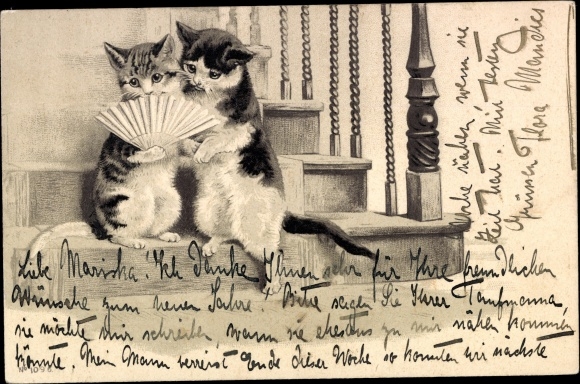 Liebe Mariska! Ich danke Ihnen sehr für Ihre freundlichen
Wünsche zum neuen Jahre. Bitte sagen Sie Ihrer
sie möchte mir schreiben, wann sie ehestens zu mir nähen kommen
könnte. Mein Mann verreist Ende dieser Woche so könnten wir nächste
Woche nähen, wenn sie
Zeit hat. Mit besten
Grüssen Flora
No 1098.